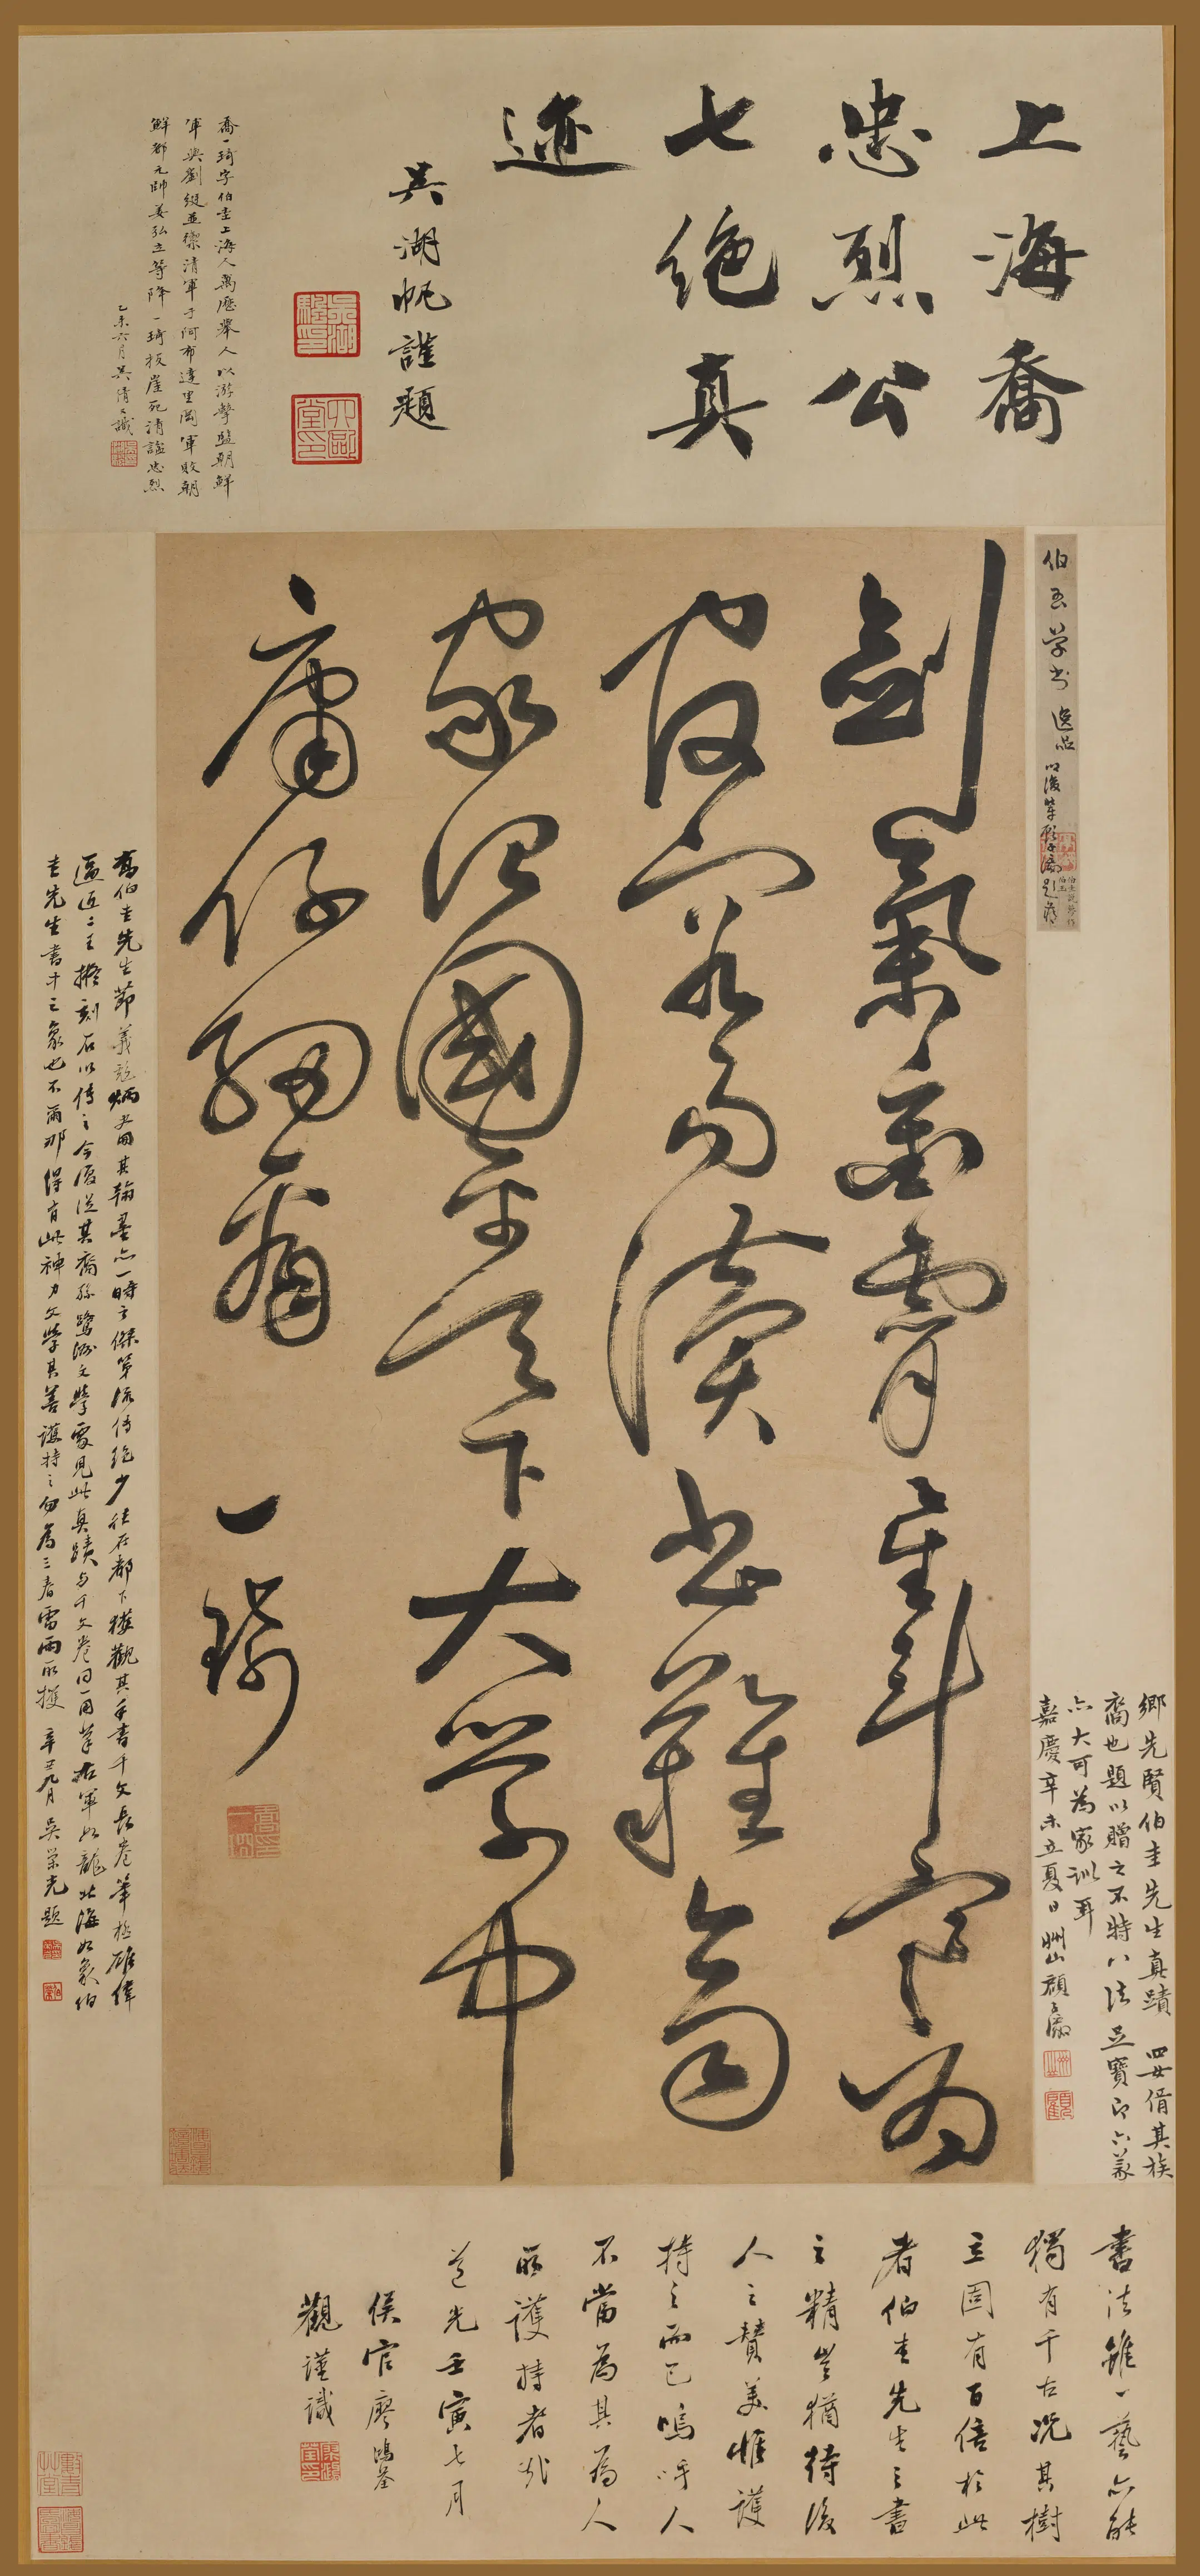 上海喬
忠烈公
七绝真
迹
吳湖帆謹題
喬一琦字伯圭上海人萬歷舉人以游擊監朝鮮
軍與劉綎並禦清軍于阿布達里岡軍敗朝
鮮都元帥姜弘立等降一琦投崖死清諡忠烈
乙未六月吳倩識
伯玉学书 逸品
劍氣衝霄星斗寒
家治國平天下大学中
庸仔細看
一琦
鄉先賢伯圭先生真蹟 四女倩其族
裔也題以贈之不特八法足寶即六義
亦大可為家訓耳
嘉慶辛未立夏日
喬伯圭先生節義彪炳史冊其翰墨亦一時之傑第流傳絕少往在都下獲觀其手書千文長卷筆極雄偉
逼近二王擬刻石以傳之今復從其裔孫鷺洲文學處見此真蹟与千文卷同一用筆右軍如龍北海如象伯
圭先生書中之象也不爾那得有此神力文學其善護持之勿為三春雷雨所攫 辛丑九月 吳榮光題
書法雖一藝亦能
獨有千古況其樹
立固有百倍於此
者伯圭先生之書
之精豈猶待後
人之贊美惟護
持之而已嗚呼人
不當為其為人
所護持者哉
道光壬寅七月
侯官廖鴻荃
觀謹識